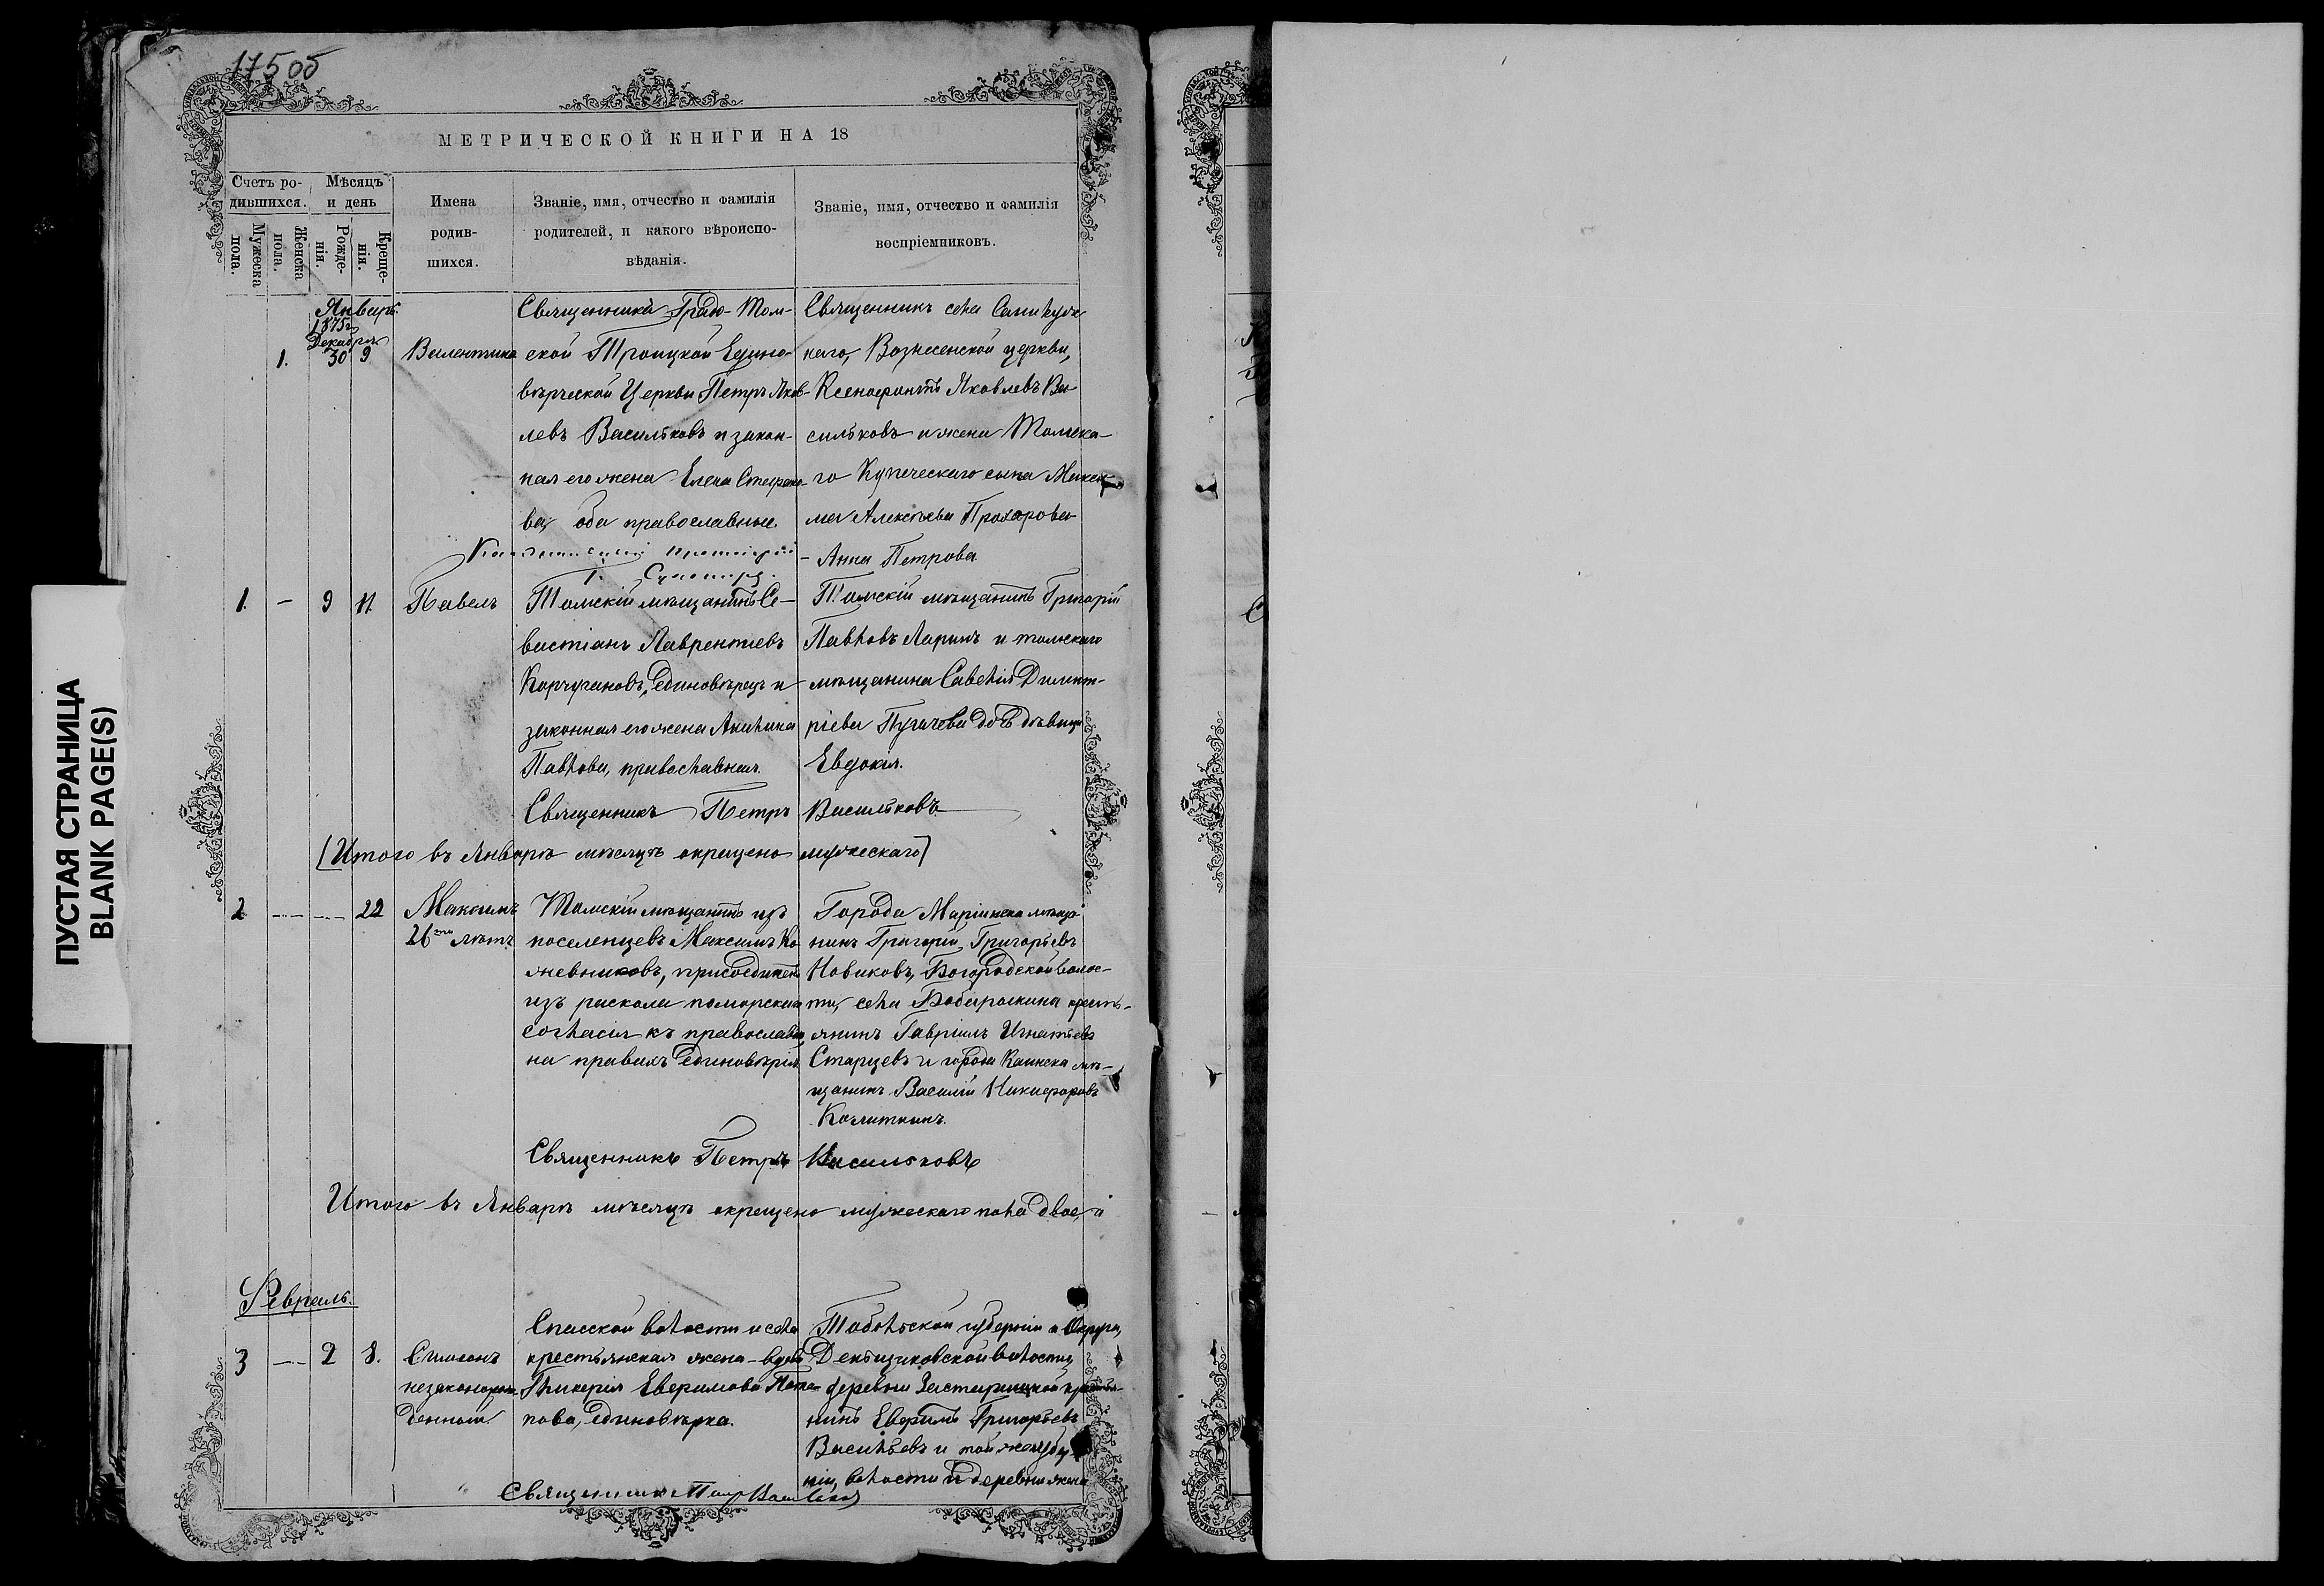 175 об
МЕТРИЧЕСКОЙ КНИГИ НА 18
Счетъ ро-
дившихся.
Мѣсяцъ
и день
Мужеска
пола.
Женска
пола.
Рожде-
нія.
Креще-
нія.
Имена
родив-
шихся.
Званіе, имя, отчество и фамилія
родителей, и какого вѣроиспо-
вѣданія.
Званіе, имя, отчество и фамилія
воспріемниковъ.
Январь.
1875 г.
Декабря
1. 30 9
Валентина
Священника Градо-Том-
ской Троицкой Едино-
вѣрческой Церкви Петръ Яков-
левъ Васильковъ и закон-
ная его жена Елена Стефано-
ва, оба православные.
Священникъ села
Вознесенской церкви,
Ксенофонтъ Яковлевъ Ва-
сильковъ и жена Томска-
го Купеческаго сына Макси-
ма Алексѣева Прохорова
Анна Петрова
1. — 9 11.
Павелъ
Томскій мѣщанинъ Се-
вастіанъ Лаврентіевъ
Корчугановъ, единовѣрецъ и
законная его жена Акилина
Павлова, православная.
Томскій мѣщанинъ Григорій
Павловъ Ларинъ и томскаго
мѣщанина Савелія Димит-
ріева Пугачева дочь дѣвица
Евдокія.
Священникъ Петръ Васильковъ
[Итого въ Январѣ мѣсяцѣ окрещено мужескаго]
2 — — 22
Максимъ
26ти лѣтъ
Томскій мѣщанинъ изъ
поселенцевъ Максимъ Ко-
жевниковъ, присоединенъ
изъ раскола поморскаго
согласія къ православію
на правилъ единовѣрія
Города Маріинска мѣща-
нинъ Григорій Григорьевъ
Новиковъ, Богородской волос-
ти, села Бабарыкина кресть-
янинъ Гавріилъ Игнатьевъ
Старцевъ и города Каинска мѣ-
щанинъ Василій Никифоровъ
Священникъ Петръ Васильковъ
Итого въ Январѣ мѣсяцѣ окрещено мужескаго пола двое, и
Февраль.
3 — 2 8.
Симеонъ
незаконорож-
денный
Спасской волости и села
крестьянская жена-вдова
Гликерія Евфимова Пота-
пова, единовѣрка.
Тобольской губерніи и Округа,
Деньщиковской волости,
деревни крестья-
нинъ Евфимъ Григорьевъ
Васильевъ и той же губер-
ніи, волости и деревни жена
Священникъ Петръ Васильковъ
ПУСТАЯ СТРАНИЦА
BLANK PAGE(S)